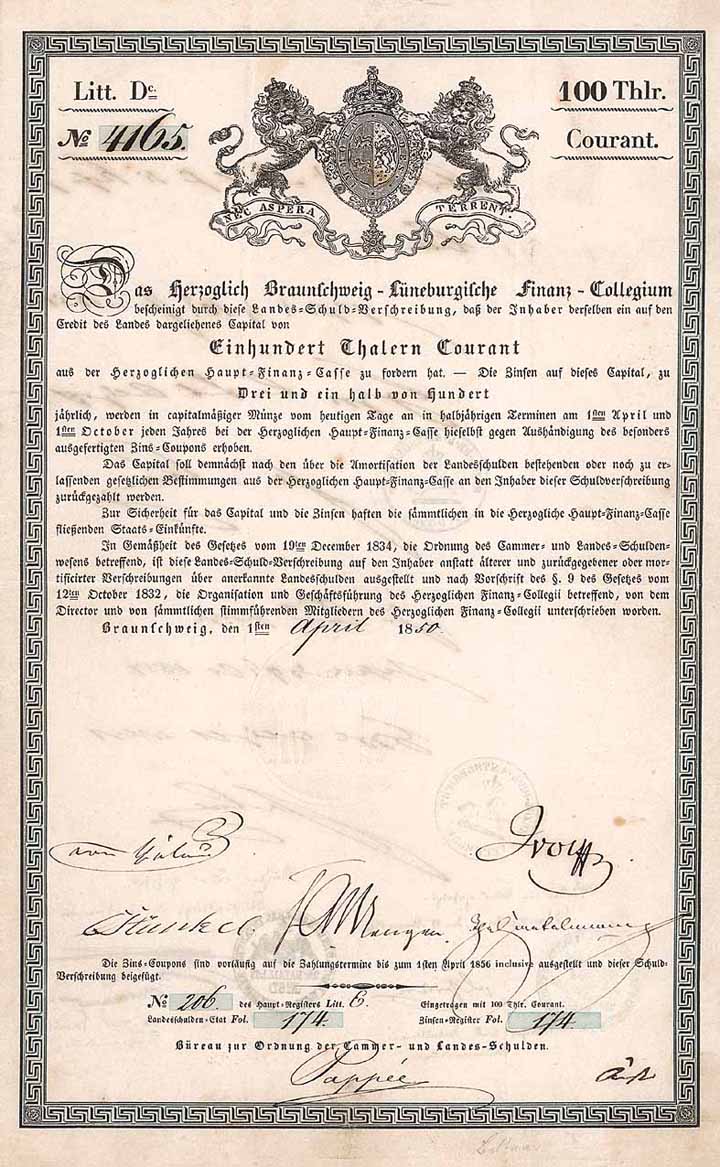 Litt. Dc.
100 Thlr.
№ 4165.
Courant.
NEC ASPERA TERRENT
Das Herzoglich Braunschweig-Lüneburgische Finanz-Collegium
bescheinigt durch diese Landes-Schuld-Verschreibung, daß der Inhaber derselben ein auf den
Credit des Landes dargeliehenes Capital von
Einhundert Thalern Courant
aus der Herzoglichen Haupt-Finanz-Casse zu fordern hat. — Die Zinsen auf dieses Capital, zu
Drei und ein halb von Hundert
jährlich, werden in capitalmäßiger Münze vom heutigen Tage an in halbjährigen Terminen am 1sten April und
1sten October jeden Jahres bei der Herzoglichen Haupt-Finanz-Casse hieselbst gegen Aushändigung des besonders
ausgefertigten Zins-Coupons erhoben.
Das Capital soll demnächst nach den über die Amortisation der Landesschulden bestehenden oder noch zu er-
lassenden gesetzlichen Bestimmungen aus der Herzoglichen Haupt-Finanz-Casse an den Inhaber dieser Schuldverschreibung
zurückgezahlt werden.
Zur Sicherheit für das Capital und die Zinsen haften die sämmtlichen in die Herzogliche Haupt-Finanz-Casse
fließenden Staats-Einkünfte.
In Gemäßheit des Gesetzes vom 19ten December 1834, die Ordnung des Cammer- und Landes-Schulden-
wesens betreffend, ist diese Landes-Schuld-Verschreibung auf den Inhaber anstatt älterer und zurückgegebener oder mor-
tificirter Verschreibungen über anerkannte Landesschulden ausgestellt und nach Vorschrift des §. 9 des Gesetzes vom
12ten October 1832, die Organisation und Geschäftsführung des Herzoglichen Finanz-Collegii betreffend, von dem
Director und von sämmtlichen stimmführenden Mitgliedern des Herzoglichen Finanz-Collegii unterschrieben worden.
Braunschweig, den 1sten April 1850.
Die Zins-Coupons sind vorläufig auf die Zahlungstermine bis zum 1sten April 1856 inclusive ausgestellt und dieser Schuld-
Verschreibung beigefügt.
№ 206. des Haupt-Registers Litt. C. Eingetragen mit 100 Thlr. Courant.
Landesschulden-Etat Fol. 174. Zinsen-Register Fol. 174.
Büreau zur Ordnung der Cammer- und Landes-Schulden.
Pappée